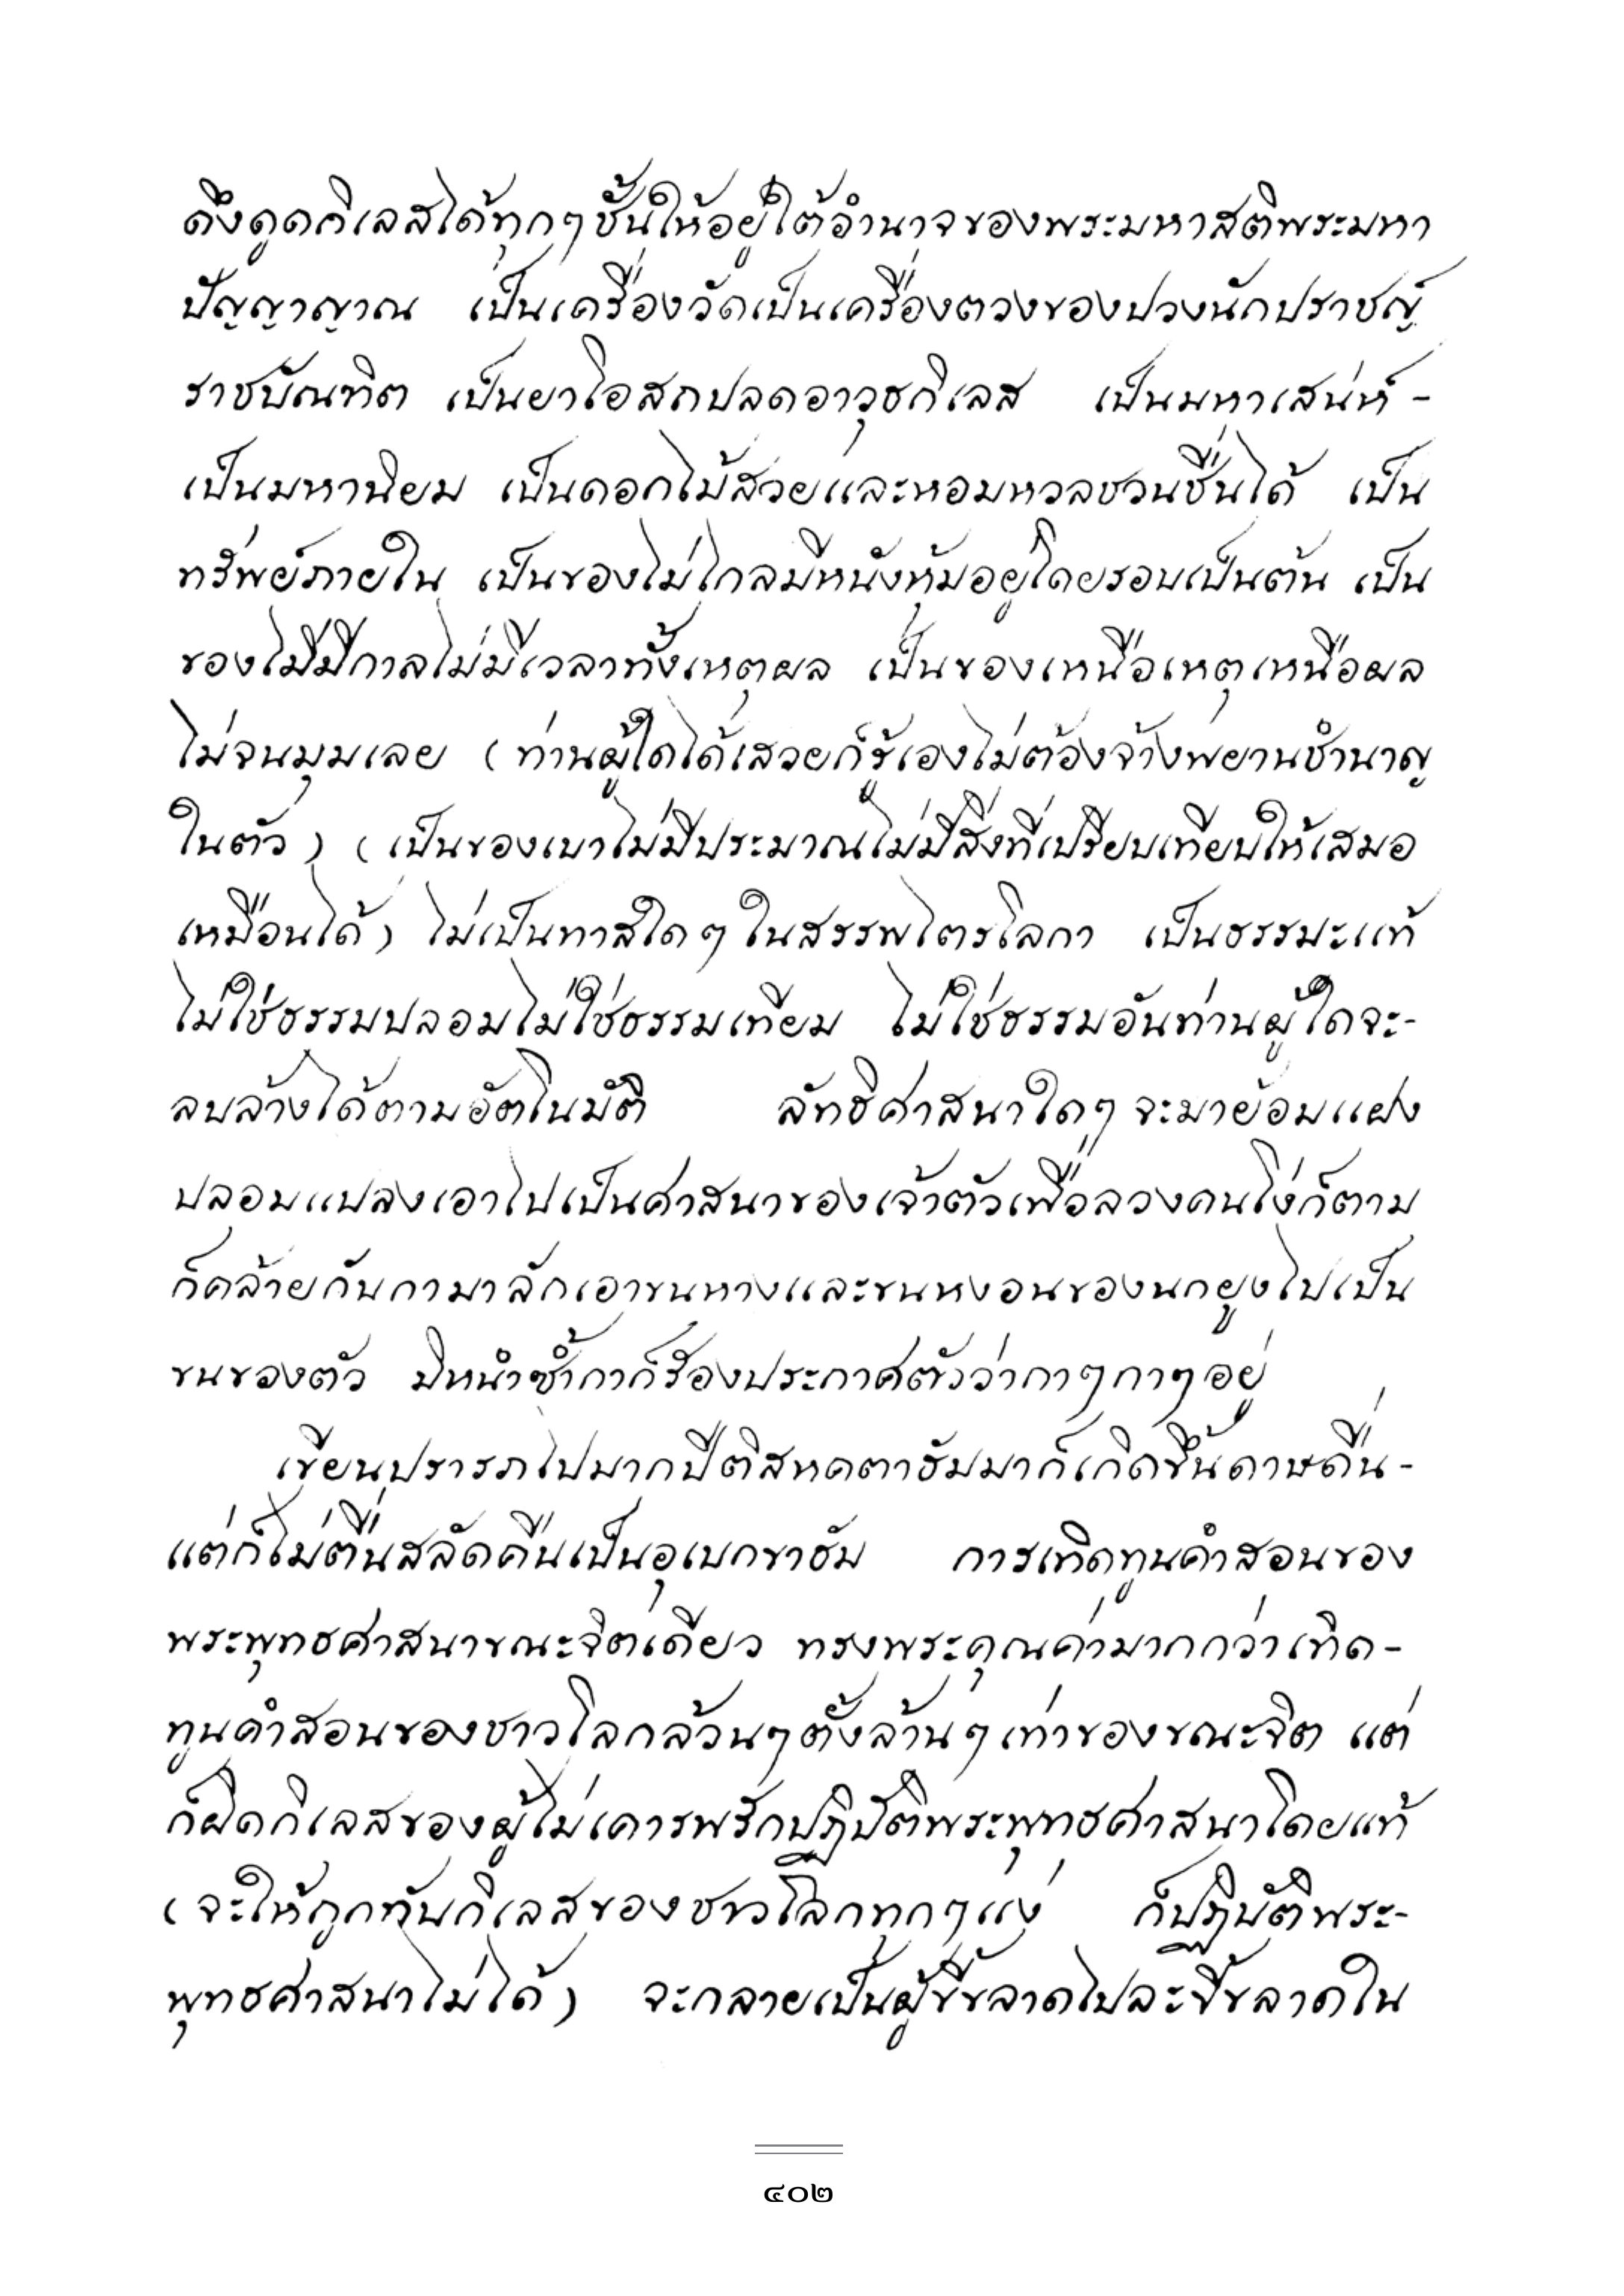 ดึงดูดกิเลสได้ทุกๆชั้นให้อยู่ใต้อำนาจของพระมหาสติพระมหา
ปัญญาญาณ เป็นเครื่องวัดเป็นเครื่องตวงของปวงนักปราชญ์
ราชบัณฑิต เป็นยาโอสถปลดอาวุธกิเลส เป็นมหาเสน่ห์ -
เป็นมหานิยม เป็นดอกไม้สวยและหอมหวลชวนชื่นได้ เป็น
ทรัพย์ภายใน เป็นของไม่ไกลมีหนังหุ้มอยู่โดยรอบเป็นต้น เป็น
ของไม่มีกาลไม่มีเวลาทั้งเหตุผล เป็นของเหนือเหตุเหนือผล
ไม่จนมุมเลย (ท่านผู้ใดได้เสวยก็รู้เองไม่ต้องจ้างพยานชำนาญ
ในตัว) (เป็นของเบาไม่มีประมาณไม่มีสิ่งที่เปรียบเทียบให้เสมอ
เหมือนได้) ไม่เป็นทาสใดๆ ในสรรพไตรโลกา เป็นธรรมะแท้
ไม่ใช่ธรรมปลอมไม่ใช่ธรรมเทียม ไม่ใช่ธรรมอันท่านผู้ใดจะ-
ลบล้างได้ตามอัตโนมัติ ลัทธิศาสนาใดๆ จะมาย้อมแฝง
ปลอมแปลงเอาไปเป็นศาสนาของเจ้าตัวเพื่อลวงคนโง่ก็ตาม
ก็คล้ายกับกามาลักเอาขนหางและขนหงอนของนกยูงไปเป็น
ขนของตัว มิหนำซ้ำกาก็ร้องประกาศตัวว่ากาๆกาๆอยู่
เขียนปรารภไปมากปีติสหคตาธัมมาก็เกิดขึ้นดาษดื่น-
แต่ก็ไม่ตื่นสลัดคืนเป็นอุเบกขาธัม การเทิดทูนคำสอนของ
พระพุทธศาสนาขณะจิตเดียว ทรงพระคุณค่ามากกว่าเทิด-
ทูนคำสอนของชาวโลกล้วนๆตั้งล้านๆ เท่าของขณะจิต แต่
ก็ผิดกิเลสของผู้ไม่เคารพรักปฏิบัติพระพุทธศาสนาโดยแท้
(จะให้ถูกกับกิเลสของชาวโลกทุกๆแง่ ก็ปฏิบัติพระ-
พุทธศาสนาไม่ได้) จะกลายเป็นผู้ขี้ขลาดไปละขี้ขลาดใน
๔๐๒